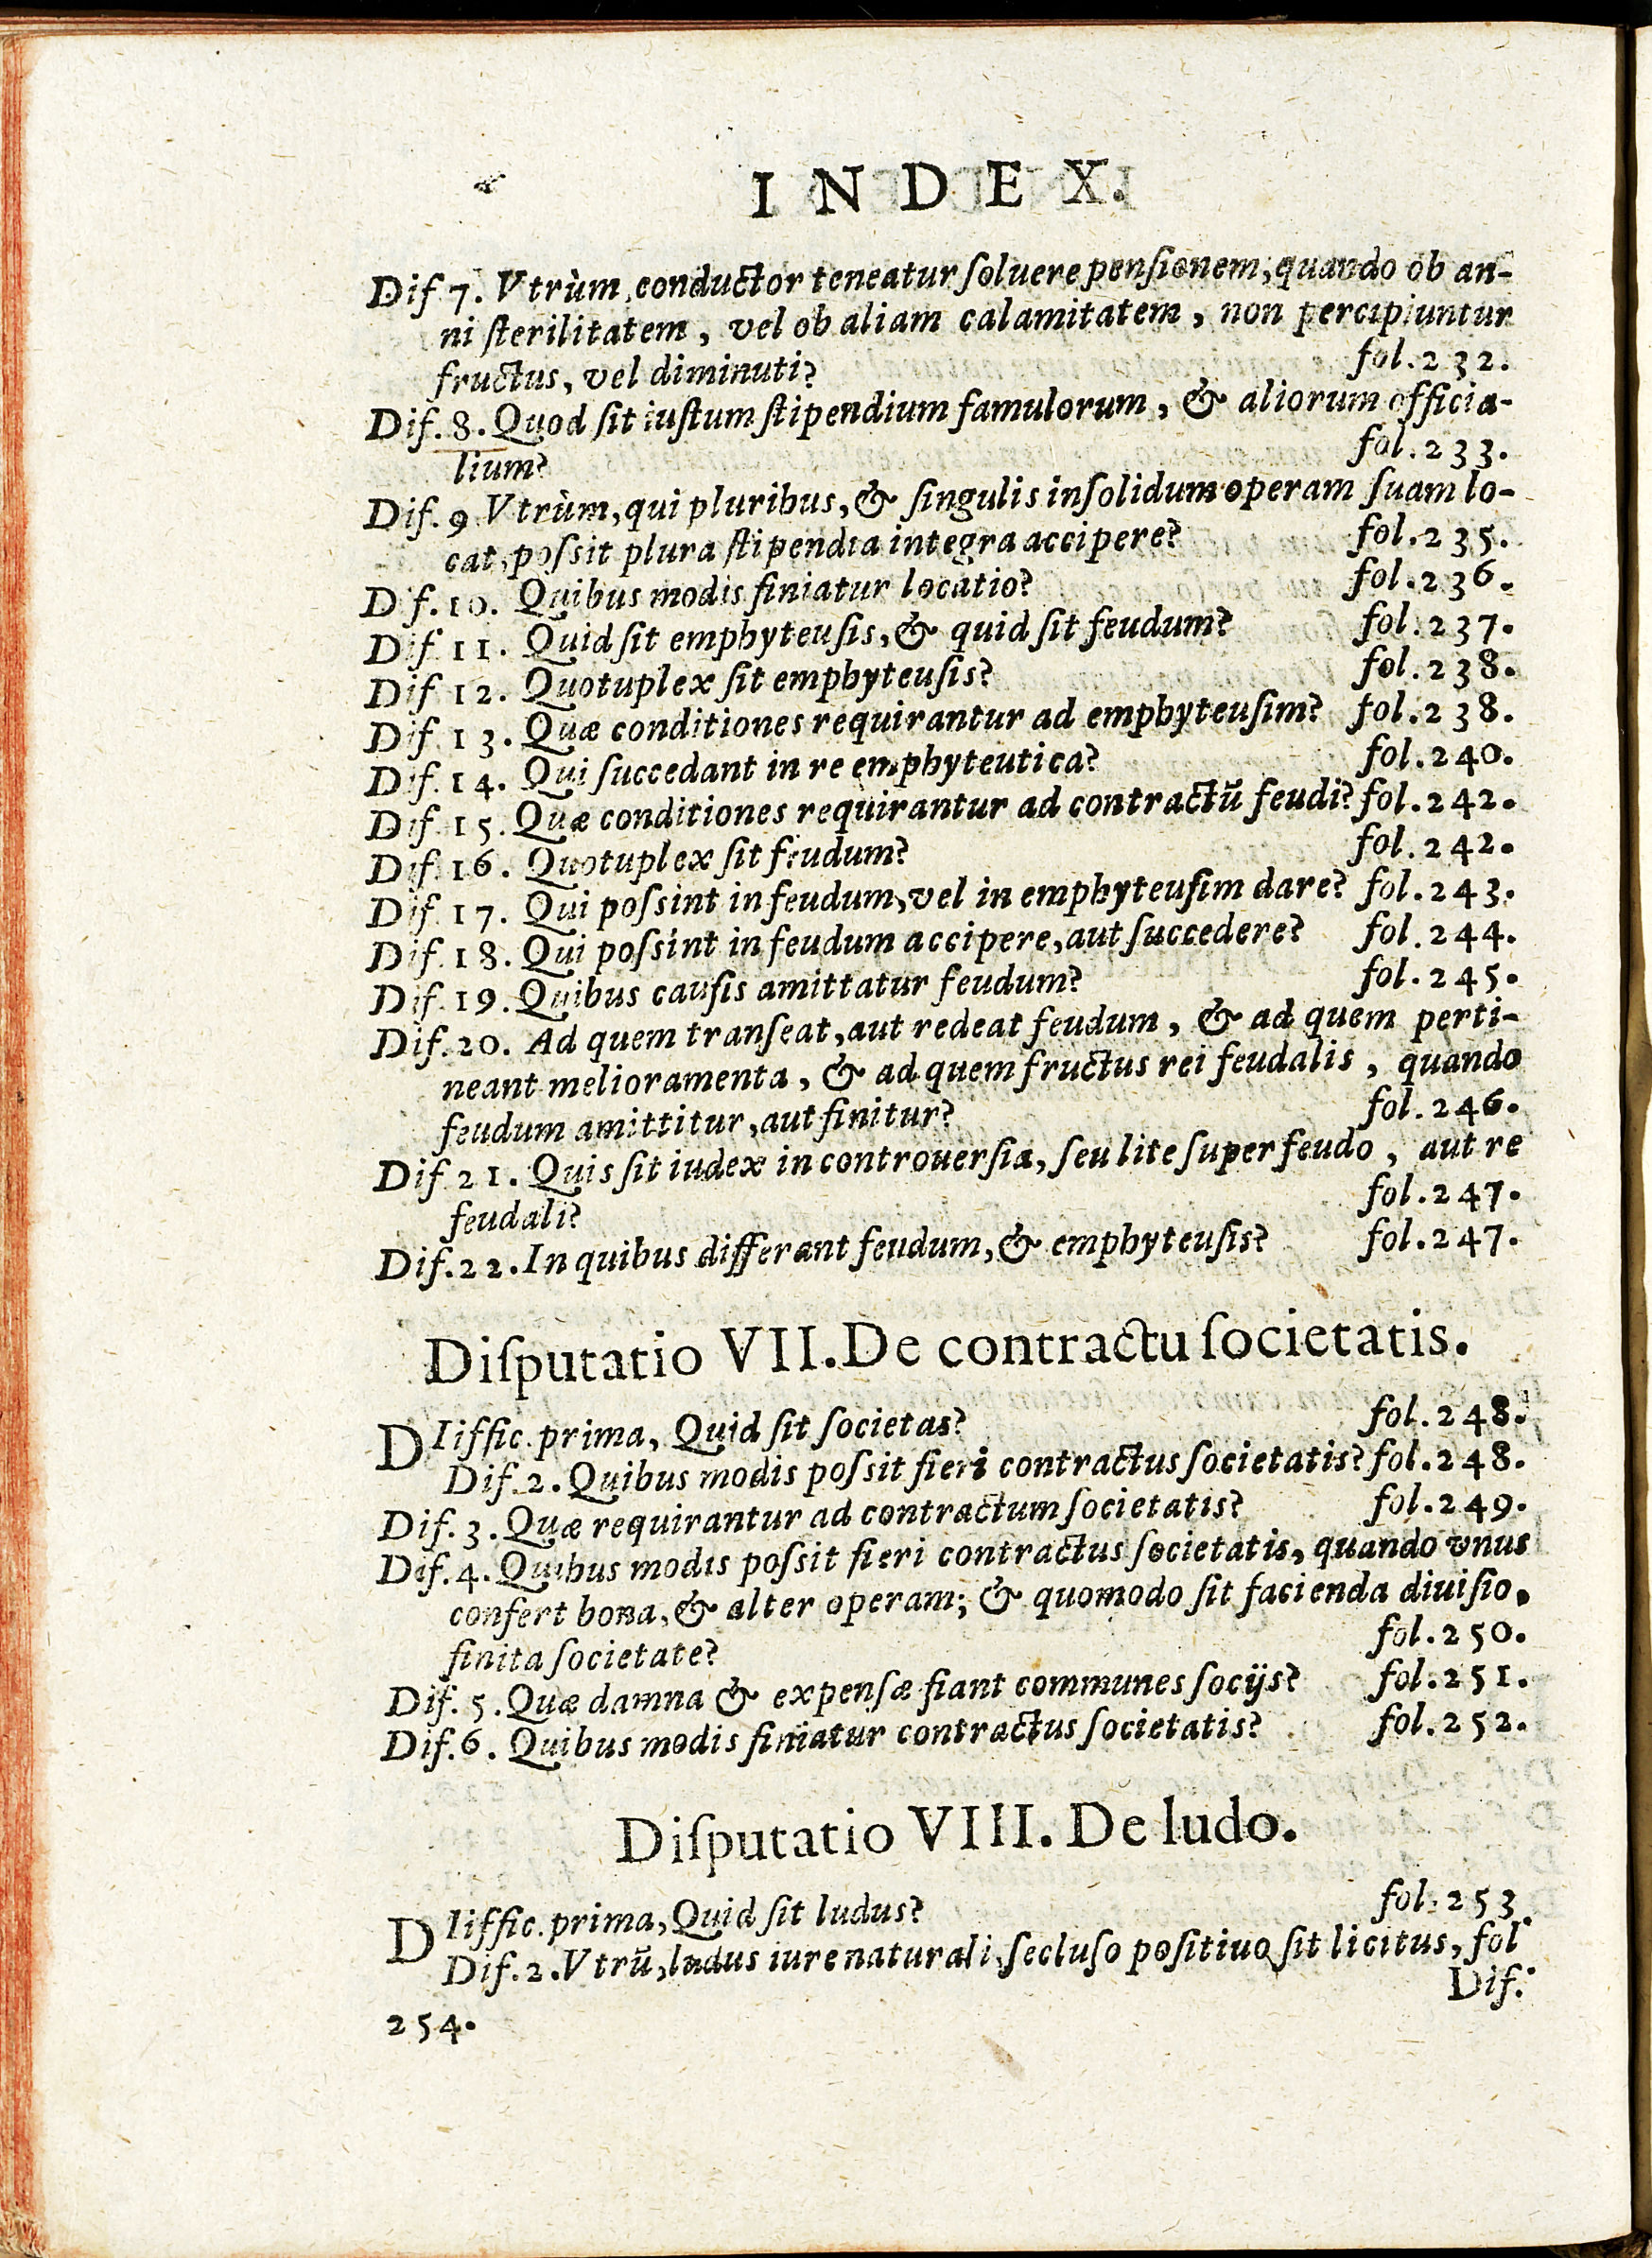 INDEX.
Dif 7. Vtrùm conductor teneatur ſoluere penſionem, quando ob an-
ni ſterilitatem, vel ob aliam calamitatem, non percipiuntur
fructus, vel diminuti? fol. 232.
Dif. 8. Quod ſit iuſtum ſtipendium famulorum, & aliorum officia-
lium? fol. 233.
Dif. 9 Vtrùm, qui pluribus, & ſingulis inſolidum operam ſuam lo-
cat, poſsit plura ſtipendia integra accipere? fol. 235.
Dif. 10. Quibus modis finiatur locatio? fol. 236.
Dif. 11. Quid ſit emphyteuſis, & quid ſit feudum? fol. 237.
Dif 12. Quotuplex ſit emphyteuſis? fol. 238.
Dif. 13. Quæ conditiones requirantur ad emphyteuſim? fol. 238.
Dif. 14. Qui ſuccedant in re emphyteutica? fol. 240.
Dif. 15. Quæ conditiones requirantur ad contractū feudi? fol. 242.
Dif. 16. Quotuplex ſit feudum? fol. 242.
Dif. 17. Qui poſsint in feudum, vel in emphyteuſim dare? fol. 243.
Dif. 18. Qui poſsint in feudum accipere, aut ſuccedere? fol. 244.
Dif. 19. Quibus cauſis amittatur feudum? fol. 245.
Dif. 20. Ad quem tranſeat, aut redeat feudum, & ad quem perti-
neant melioramenta, & ad quem fructus rei feudalis, quando
feudum amittitur, aut finitur? fol. 246.
Dif 21. Quis ſit iudex in controuerſia, ſeu lite ſuper feudo, aut re
feudali? fol. 247.
Dif. 22. In quibus differant feudum, & emphyteuſis? fol. 247.
Diſputatio VII. De contractu ſocietatis.
DIiffic. prima, Quid ſit ſocietas? fol. 248.
Dif. 2. Quibus modis poſsit fieri contractus ſocietatis? fol. 248.
Dif. 3. Quæ requirantur ad contractum ſocietatis? fol. 249.
Dif. 4. Quibus modis poſsit fieri contractus ſocietatis, quando vnus
confert bona, & alter operam; & quomodo ſit facienda diuiſio,
finita ſocietate? fol. 250.
Dif. 5. Quæ damna & expenſæ fiant communes ſocijs? fol. 251.
Dif. 6. Quibus modis finiatur contractus ſocietatis? fol. 252.
Diſputatio VIII. De ludo.
DIiffic. prima, Quid ſit ludus? fol. 253.
Dif. 2. Vtrū, ludus iure naturali, ſecluſo poſitiuo ſit licitus, fol.
254. Dif.